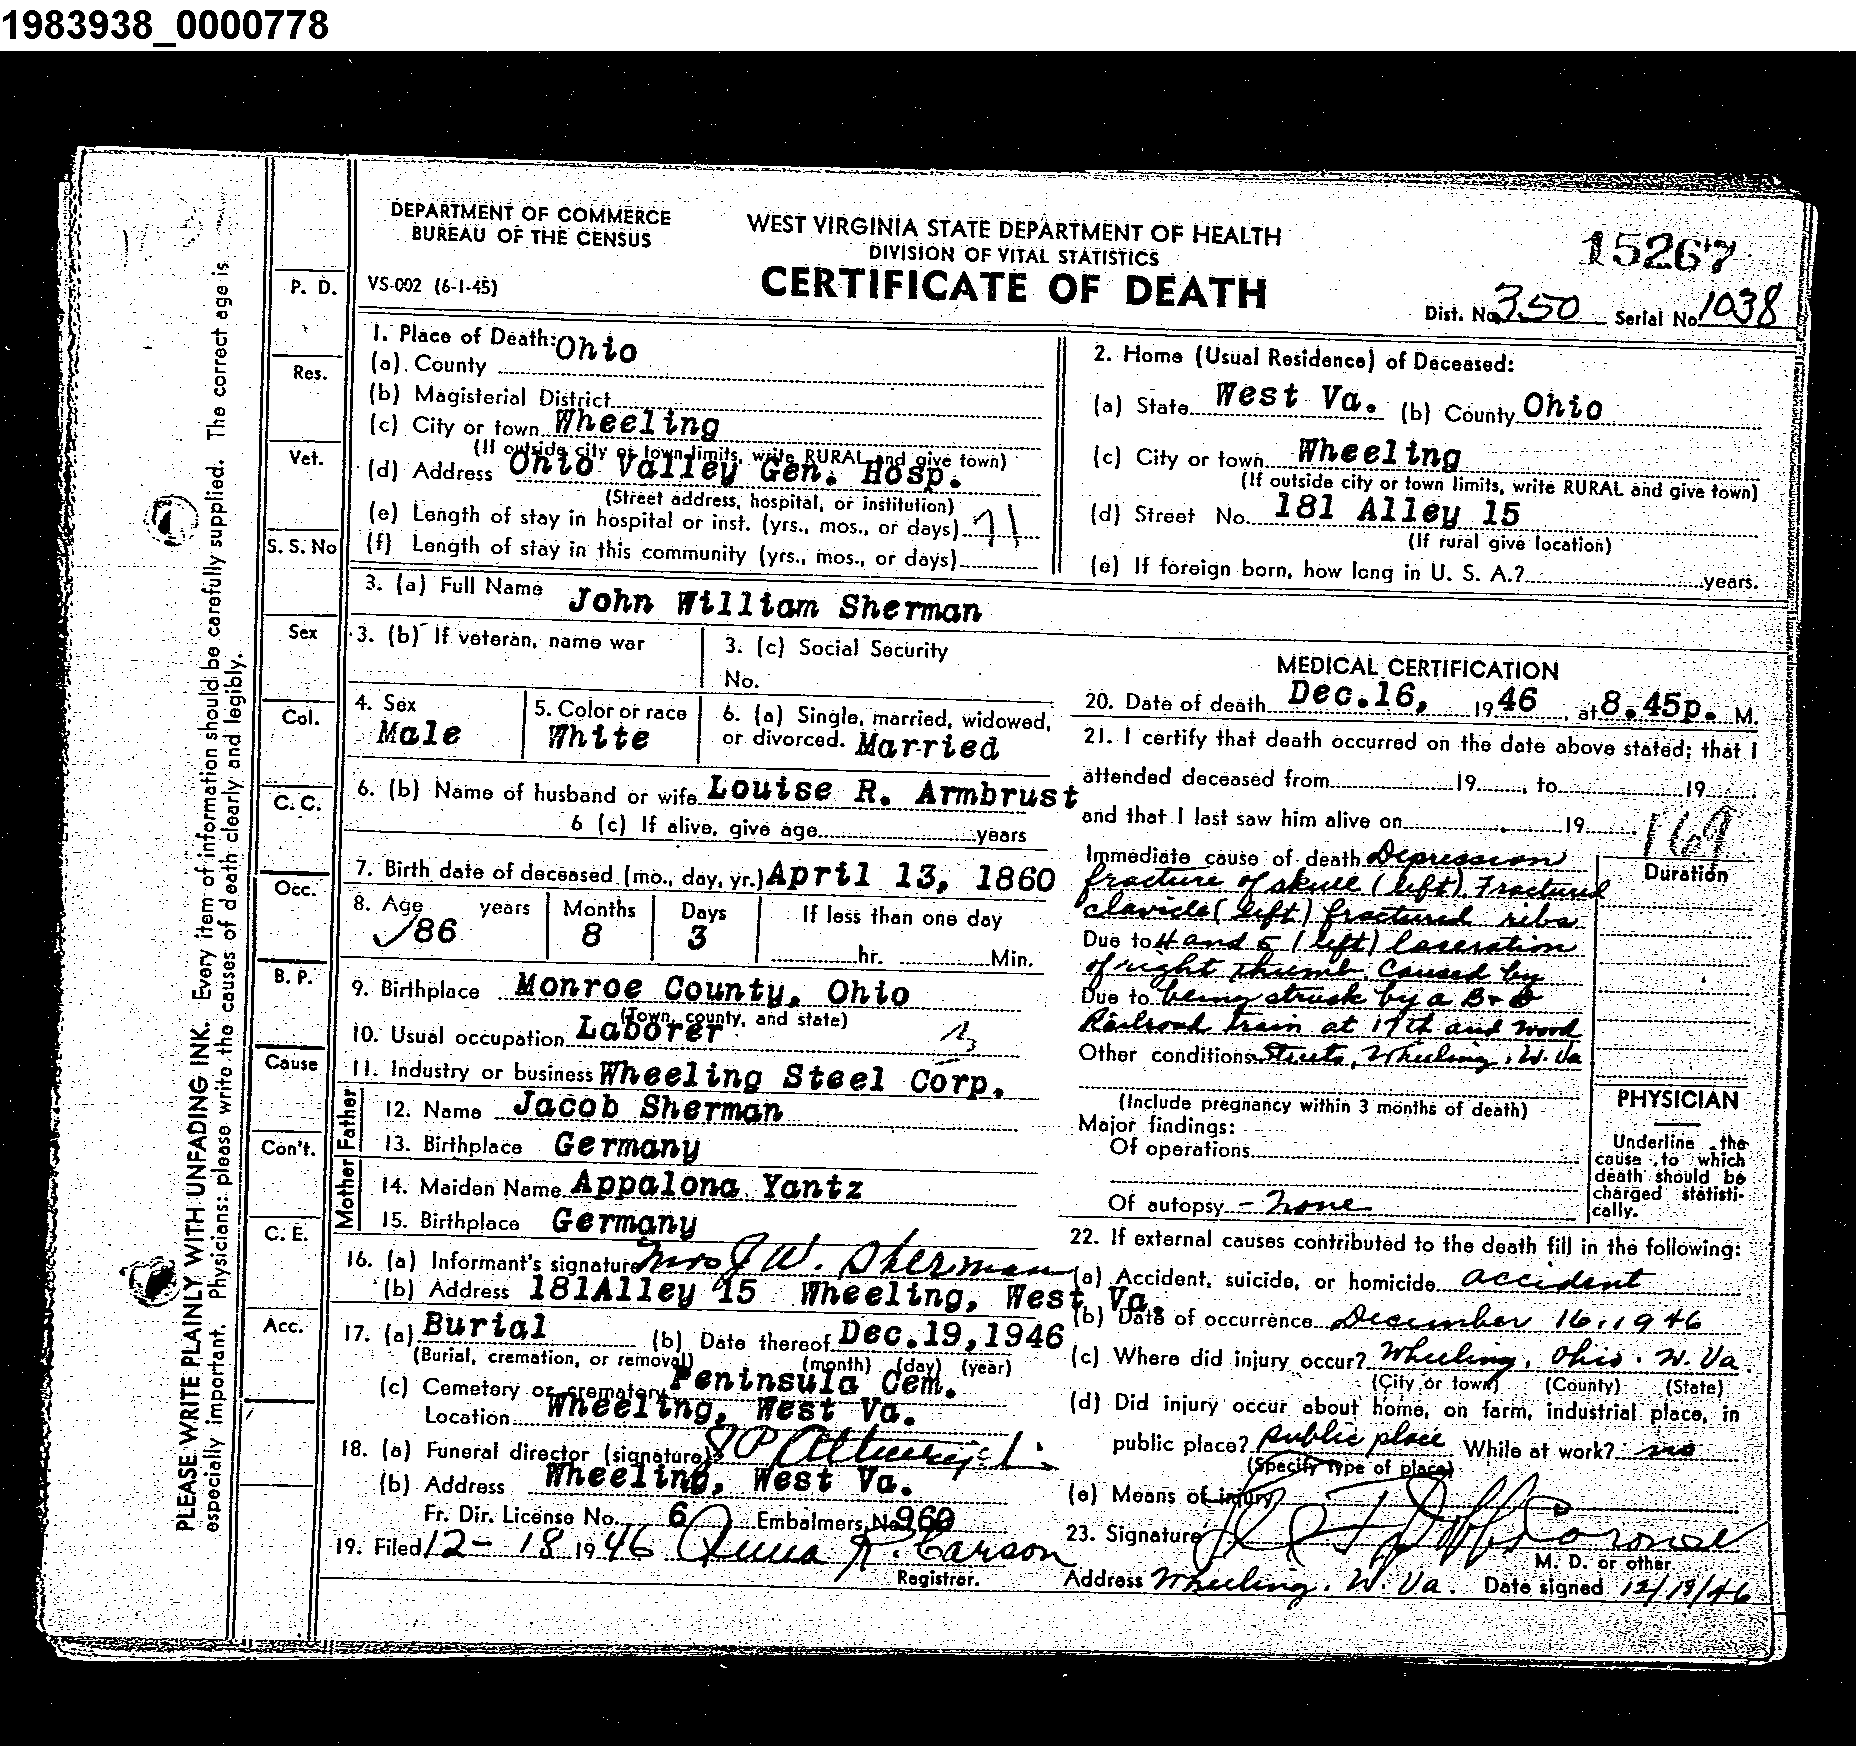 1983938_0000778
DEPARTMENT OF COMMERCE
BUREAU OF THE CENSUS
WEST VIRGINIA STATE DEPARTMENT OF HEALTH
DIVISION OF VITAL STATISTICS
CERTIFICATE OF DEATH
15267
VS-002 (6-1-45)
Dist. No. 350 Serial No. 1038
PLEASE WRITE PLAINLY WITH UNFADING INK. Every item of information should be carefully supplied. The correct age is
especially important. Physicians: please write the causes of death clearly and legibly.
P. D.
Res.
Vet.
S. S. No
Sex
Col.
C. C.
Occ.
B. P.
Cause
Con't.
C. E.
Acc.
1. Place of Death:
(a) County Ohio
(b) Magisterial District
(c) City or town Wheeling
(If outside city or town limits, write RURAL and give town)
(d) Address Ohio Valley Gen. Hosp.
(Street address, hospital, or institution)
(e) Length of stay in hospital or inst. (yrs., mos., or days)
(f) Length of stay in this community (yrs., mos., or days)
2. Home (Usual Residence) of Deceased:
(a) State West Va. (b) County Ohio
(c) City or town Wheeling
(If outside city or town limits, write RURAL and give town)
(d) Street No. 181 Alley 15
(If rural give location)
(e) If foreign born, how long in U. S. A.? years.
3. (a) Full Name John William Sherman
3. (b) If veteran, name war
3. (c) Social Security
No.
4. Sex
Male
5. Color or race
White
6. (a) Single, married, widowed,
or divorced. Married
6. (b) Name of husband or wife Louise R. Armbrust
6 (c) If alive, give age years
7. Birth date of deceased (mo., day, yr.) April 13, 1860
8. Age years Months Days If less than one day
86 8 3 hr. Min.
9. Birthplace Monroe County, Ohio
(Town, county, and state)
10. Usual occupation Laborer
11. Industry or business Wheeling Steel Corp.
Father
12. Name Jacob Sherman
13. Birthplace Germany
Mother
14. Maiden Name Appalona Yantz
15. Birthplace Germany
16. (a) Informant's signature Mrs J W. Sherman
(b) Address 181Alley 15 Wheeling, West Va.
17. (a) Burial (b) Date thereof Dec.19,1946
(Burial, cremation, or removal) (month) (day) (year)
(c) Cemetery or crematory Peninsula Cem.
Location Wheeling, West Va.
18. (a) Funeral director (signature)
(b) Address Wheeling, West Va.
Fr. Dir. License No. 6 Embalmers No. 960
19. Filed 12-18 1946 Anna K. Carson
Registrar.
MEDICAL CERTIFICATION
20. Date of death Dec.16, 1946 at 8.45p. M.
21. I certify that death occurred on the date above stated; that I
attended deceased from 19 , to 19
and that I last saw him alive on 19
169
Immediate cause of death Depression
fracture of skull (left). Fractured
clavicle (left) fractured ribs
Due to 4 and 5 (left) laceration
of right thumb. Caused by
Due to being struck by a B & O
Railroad train at 17th and Wood
Other conditions Streets, Wheeling, W. Va
Duration
(Include pregnancy within 3 months of death)
Major findings:
Of operations
Of autopsy - None
PHYSICIAN
Underline the
cause to which
death should be
charged statisti-
cally.
22. If external causes contributed to the death fill in the following:
(a) Accident, suicide, or homicide accident
(b) Date of occurrence December 16, 1946
(c) Where did injury occur? Wheeling, Ohio. W. Va.
(City or town) (County) (State)
(d) Did injury occur about home, on farm, industrial place, in
public place? public place While at work? no
(Specify type of place)
(e) Means of injury
23. Signature Coroner
M. D. or other
Address Wheeling. W. Va. Date signed 12/19/46